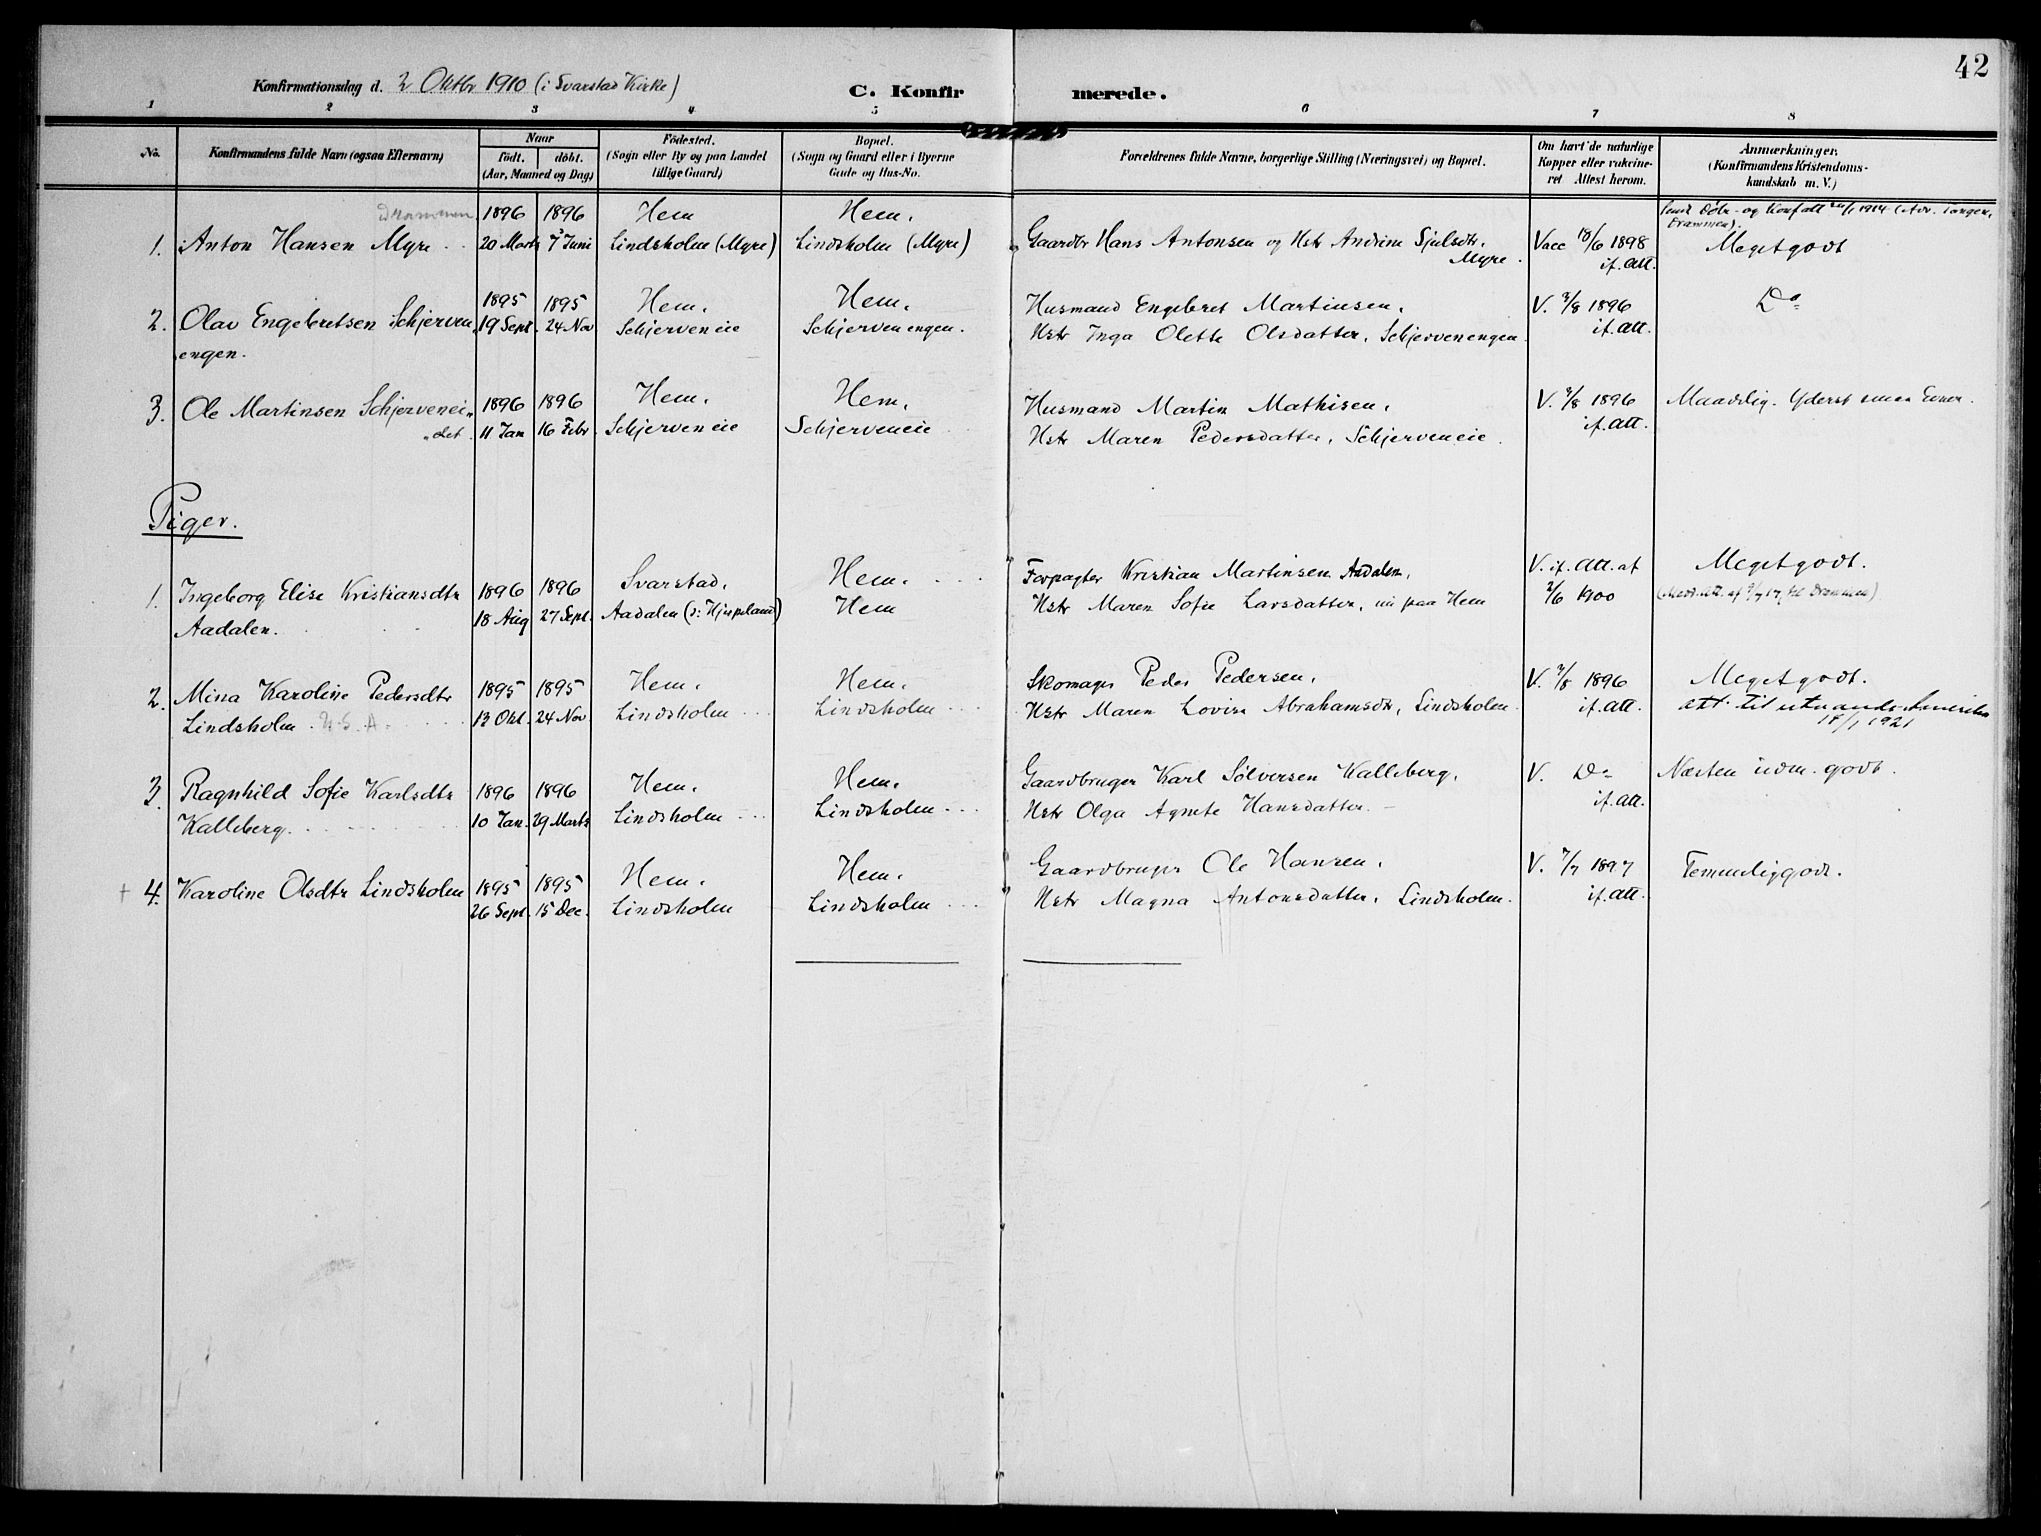 42
Konfirmationsdag d. 2 Oktbr 1910 (i Svarstad Kirke)
C. Konfirmerede.
1 2 3 4 5 6 7 8
No.
Konfirmandens fulde Navn (ogsaa Efternavn)
Naar
födt. döbt.
(Aar, Maaned og Dag)
Födested.
(Sogn eller By og paa Landet
tillige Gaard)
Bopæl.
(Sogn og Gaard eller i Byerne
Gade og Hus-No.
Forældrenes fulde Navne, borgerlige Stilling (Næringsvei) og Bopæl.
Om havt de naturlige
Kopper eller vakcine-
ret Attest herom.
Anmærkninger.
(Konfirmandens Kristendoms-
kundskab m. V.)
Drammen 1896 1896 Hem Hem. Döbs- og Konf.att 1914 Tangen, Drammen).
1. Anton Hansen Myre 20 Marts 7 Juni Lindsholm (Myre) Lindsholm (Myre) Gaardbr Hans Antonsen og Hstr Andrine Sjulsdtr. Vacc 18/6 1898 Megetgodt
Myre. if. att.
1895 1895 Hem. Hem. Husmand Engebret Martinsen. V. 3/8 1896 Do
2. Olav Engebretsen Schjerven 19 Sept. 24 Nov Schjerven eie Schjervenengen. Hstr Inga Olette Olsdatter, Schjervenengen if. att.
engen.
3. Ole Martinsen Schjervenei- 1896 1896 Hem. Hem. Husmand Martin Mathisen. V. 3/8 1896 Maadelig. Yderst smaa Evner.
det 11 Jan 16 Febr. Schjerven eie Schjerveneie Hstr Maren Pedersdatter, Schjerveneie. if. att.
Piger.
1. Ingeborg Elise Kristiansdtr 1896 1896 Svarstad. Hem. Forpagter Kristian Martinsen Aadalen. V. if. att. af Megetgodt.
Aadalen. 18 Aug 27 Sept. Aadalen (ↄ: Hjuspeland) Hem Hstr Maren Sofie Larsdatter, nu paa Hem 2/6 1900 til Drammen)
2. Mina Karoline Pedersdtr 1895 1895 Hem. Hem. Skomager Peder Pedersen. V. 3/8 1896 Megetgodt.
Lindsholm. U.S.A. 13 Okt. 24 Nov. Lindsholm Lindsholm Hstr Maren Lovise Abrahamsdtr, Lindsholm. if. att. att. til utvandr. Amerika
1921
3. Ragnhild Sofie Karlsdtr 1896 1896 Hem. Hem. Gaardbruger Karl Sölversen Kalleberg. V. Do Næsten udm. godt.
Kalleberg. 10 Jan. 29 Marts Lindsholm Lindsholm Hstr Olga Agnete Hansdatter. if. att.
+ 4. Karoline Olsdtr Lindsholm 1895 1895 Hem. Hem. Gaardbruger Ole Hansen. V. 7/7 1897 Temmeliggodt.
26 Sept. 15 Dec. Lindsholm Lindsholm Hstr Magna Antonsdatter. Lindsholm. if. att.